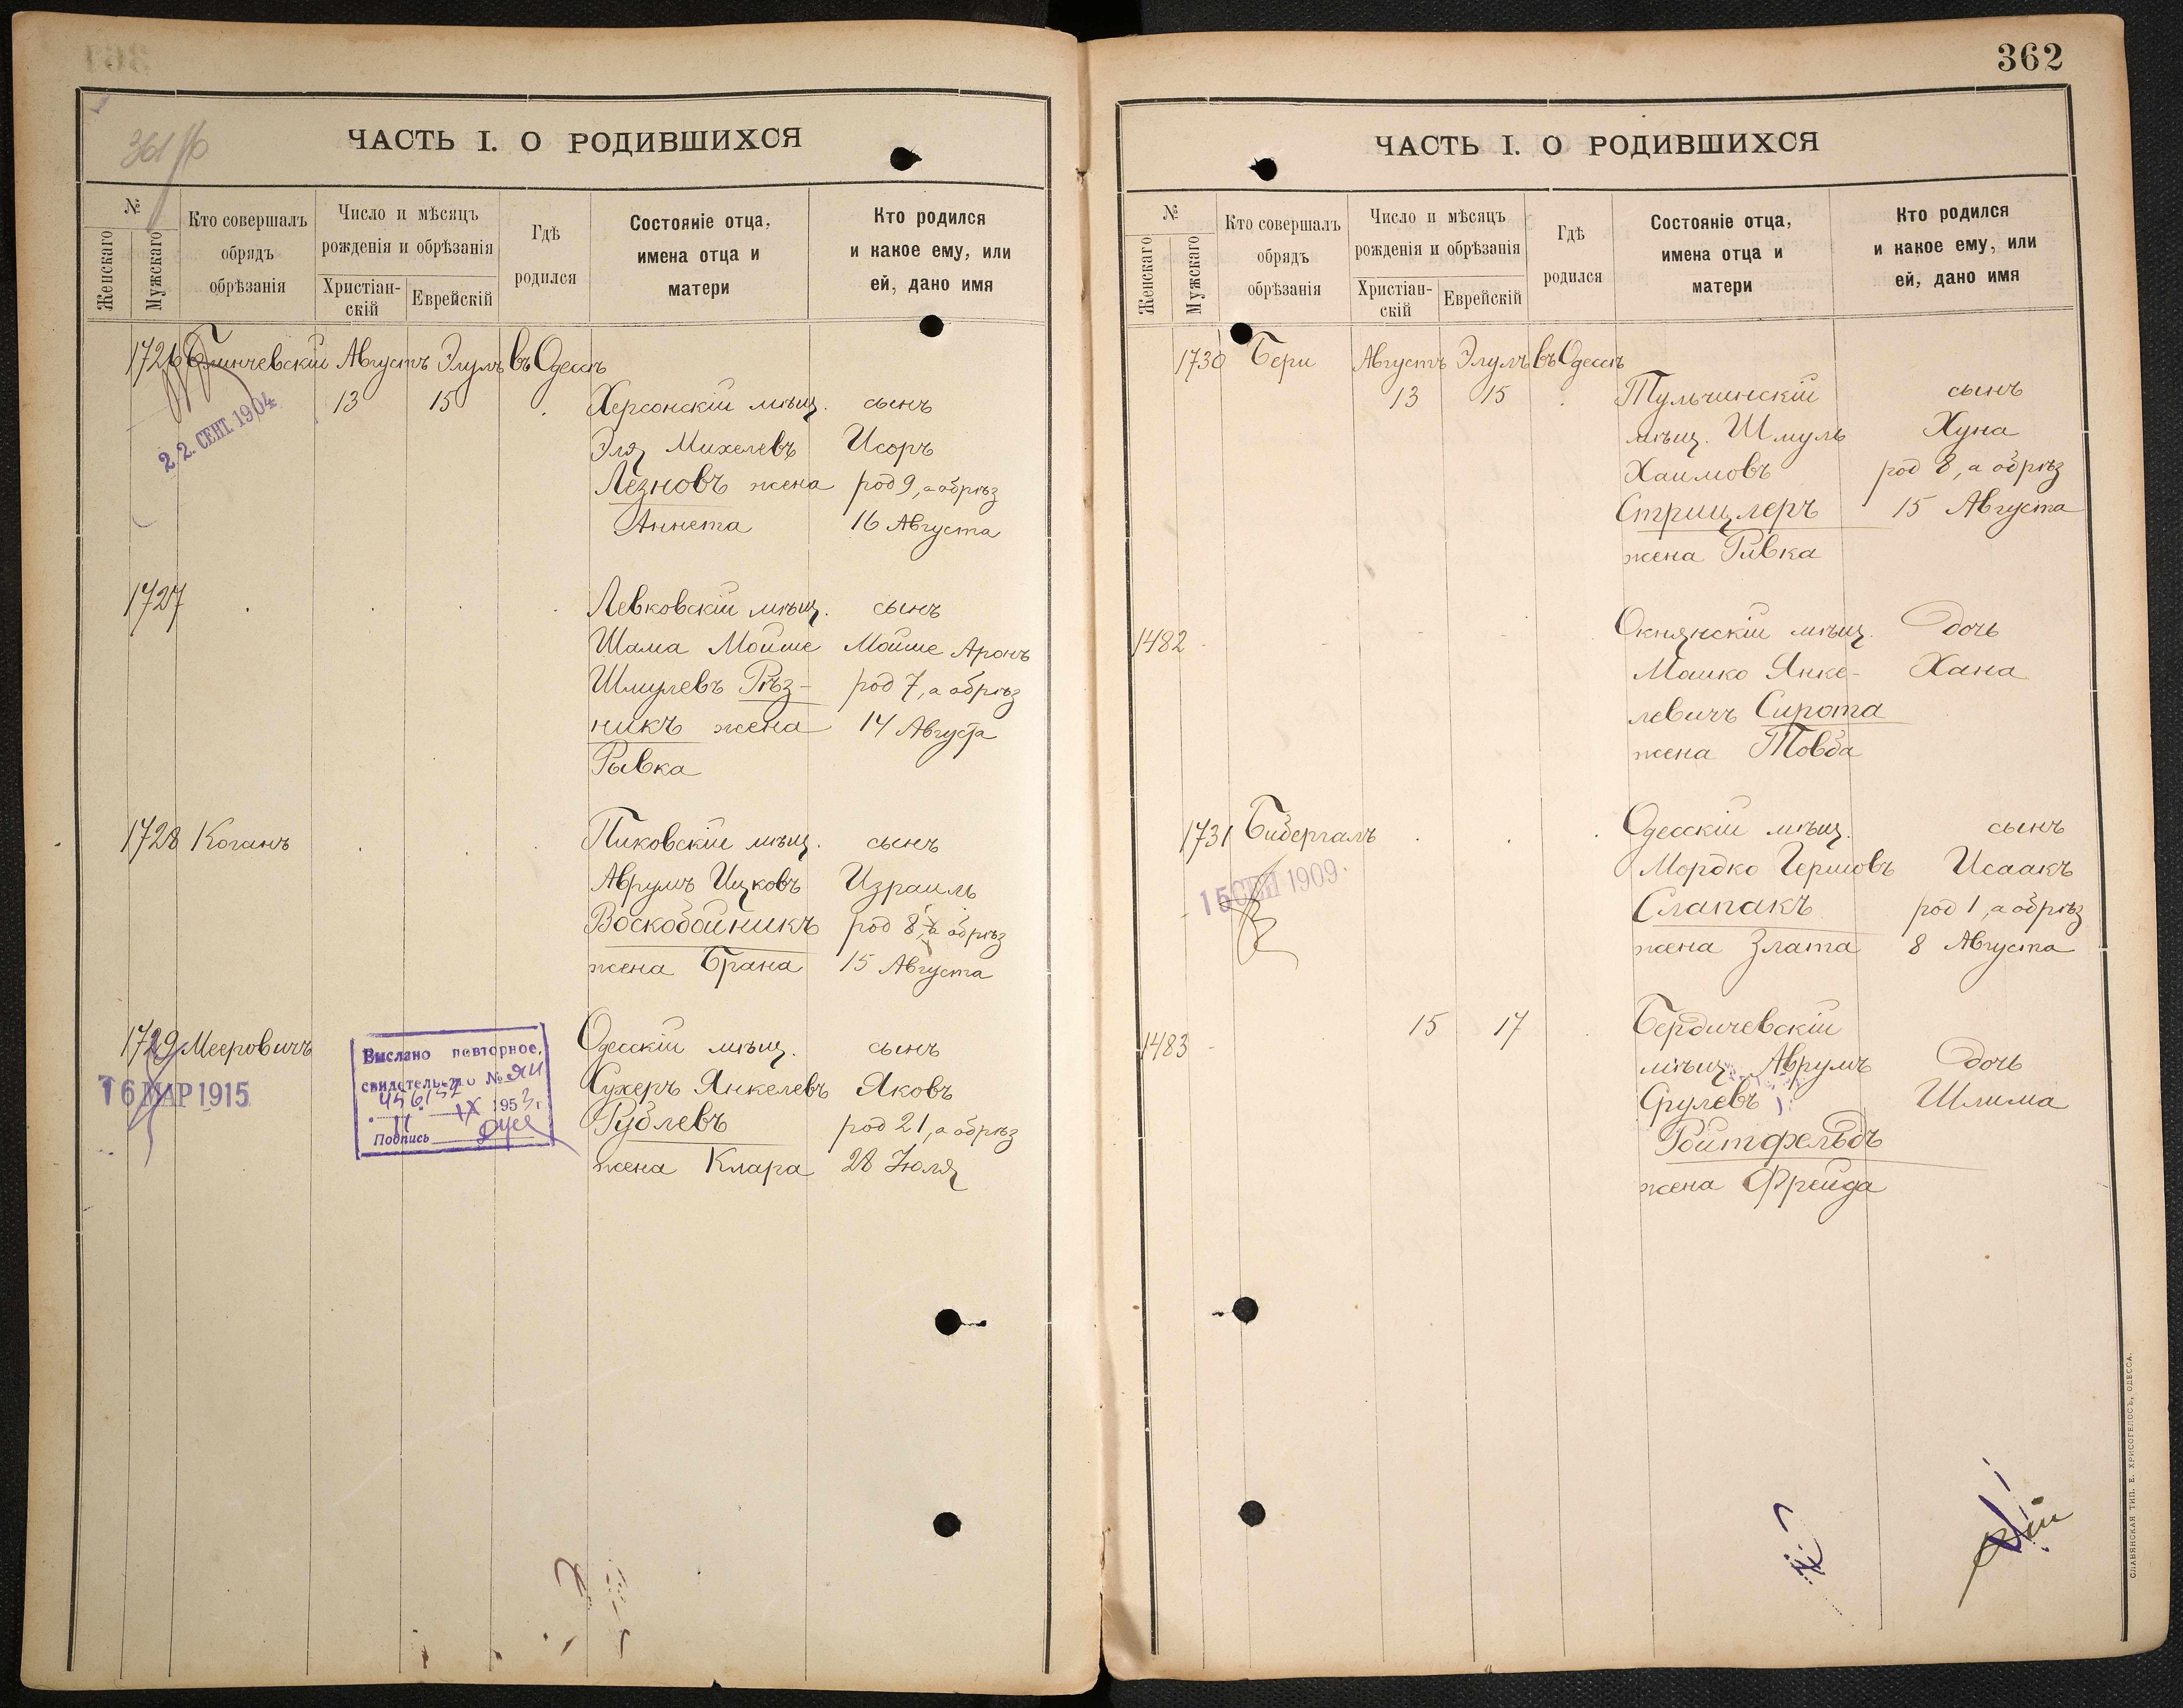 361 об
ЧАСТЬ I. О РОДИВШИХСЯ
№
Женскаго
Мужскаго
Кто совершалъ
обрядъ
обрѣзанія
Число и мѣсяцъ
рожденія и обрѣзанія
Христіан-
скій
Еврейскій
Гдѣ
родился
Состояніе отца,
имена отца и
матери
Кто родился
и какое ему, или
ей, дано имя
1726 Августъ Элулъ въ Одессѣ
13 15 Херсонскій мѣщ. сынъ
22. СЕНТ. 1904
Эля Михелевъ Исоръ
Лезновъ жена род 9, а обрѣз
Аннета 16 Августа
1727 Левковскій мѣщ. сынъ
Шама Мойше Мойше Аронъ
Шмулевъ Рѣз- род 7, а обрѣз
никъ жена 14 Августа
Рывка
1728 Коганъ Пиковскій мѣщ. сынъ
Аврумъ Ицковъ Израиль
Воскобойникъ род 8, а обрѣз
жена Брана 15 Августа
1729 Мееровичъ Одесскій мѣщ. сынъ
16 МАР 1915
Выслано повторное,
свидетельство №
IX 1953 г.
Подпись
Сухеръ Янкелевъ Яковъ
Рублевъ род 21, а обрѣз
жена Клара 28 Іюля
362
ЧАСТЬ I. О РОДИВШИХСЯ
№
Женскаго
Мужскаго
Кто совершалъ
обрядъ
обрѣзанія
Число и мѣсяцъ
рожденія и обрѣзанія
Христіан-
скій
Еврейскій
Гдѣ
родился
Состояніе отца,
имена отца и
матери
Кто родился
и какое ему, или
ей, дано имя
1730 Бери Августъ Элулъ въ Одессѣ
13 15 Тульчинскій сынъ
мѣщ. Шмуль Хуна
Хаимовъ род 8, а обрѣз
Стрицлеръ 15 Августа
жена Ривка
1482 Окнянскій мѣщ. дочь
Мошко Янке- Хана
левичъ Сирота
жена Товба
1731 Бибергалъ Одесскій мѣщ. сынъ
15 СЕН 1909.
Мордко Гершовъ Исаакъ
Слапакъ род 1, а обрѣз
жена Злата 8 Августа
1483 15 17 Бердичевскій
мѣщ. Аврумъ дочь
Срулевъ Шлима
Ройтфельдъ
жена Фрейда
СЛАВЯНСКАЯ ТИП. Е. ХРИСОГЕЛОСЪ, ОДЕССА.